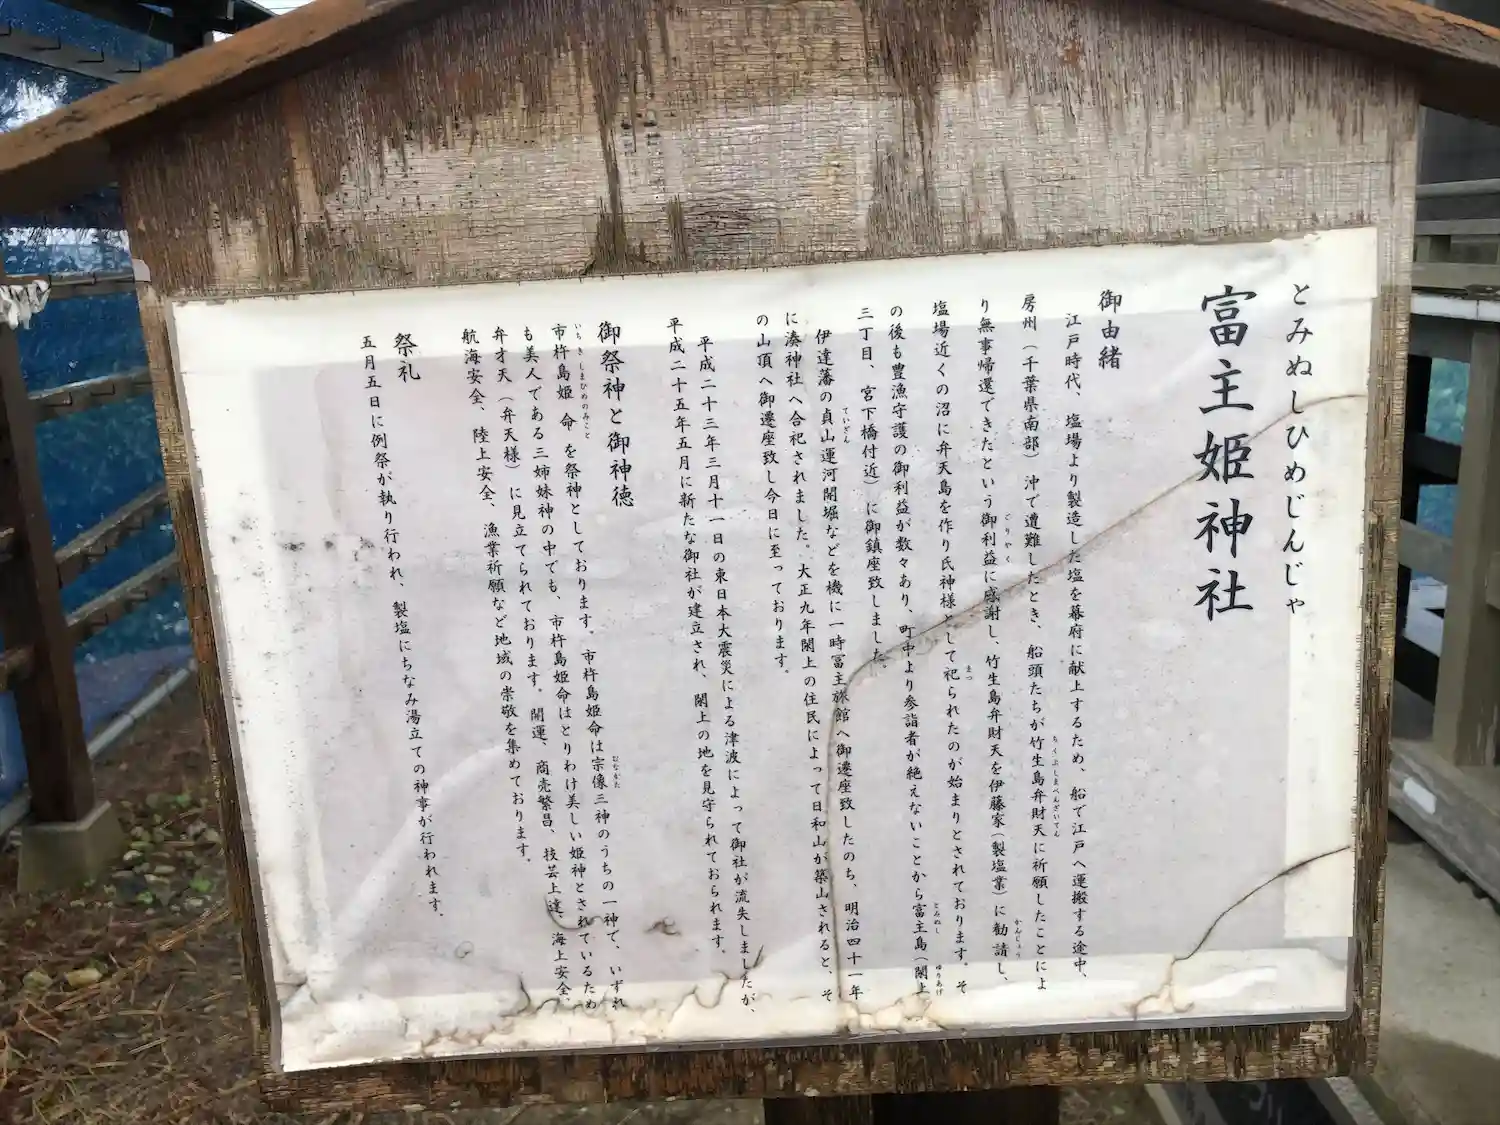 とみぬしひめじんじゃ
富主姫神社
御由緒
江戸時代、塩場より製造した塩を幕府に献上するため、船で江戸へ運搬する途中、
房州（千葉県南部）沖で遭難したとき、船頭たちが竹生島弁財天に祈願したことによ
ちくぶしまべんざいてん
り無事帰還できたという御利益に感謝し、竹生島弁財天を伊藤家（製塩業）に勧請し、
ごりやく
かんじょう
塩場近くの沼に弁天島を作り氏神様として祀られたのが始まりとされております。そ
まつ
の後も豊漁守護の御利益が数々あり、町中より参詣者が絶えないことから富主島（閖上
とみぬし
ゆりあげ
三丁目、宮下橋付近）に御鎮座致しました。
伊達藩の貞山運河開堀などを機に一時冨主旅館へ御遷座致したのち、明治四十一年
ていざん
に湊神社へ合祀されました。大正九年閖上の住民によって日和山が築山されると、そ
の山頂へ御遷座致し今日に至っております。
平成二十三年三月十一日の東日本大震災による津波によって御社が流失しましたが、
平成二十五年五月に新たな御社が建立され、閖上の地を見守られておられます。
御祭神と御神徳
市杵島姫　命　を祭神としております。市杵島姫命は宗像三神のうちの一神で、いずれ
いちきしまひめのみこと
むなかた
も美人である三姉妹神の中でも、市杵島姫命はとりわけ美しい姫神とされているため
弁才天（弁天様）に見立てられております。開運、商売繁昌、技芸上達、海上安全、
航海安全、陸上安全、漁業祈願など地域の崇敬を集めております。
祭礼
五月五日に例祭が執り行われ、製塩にちなみ湯立ての神事が行われます。